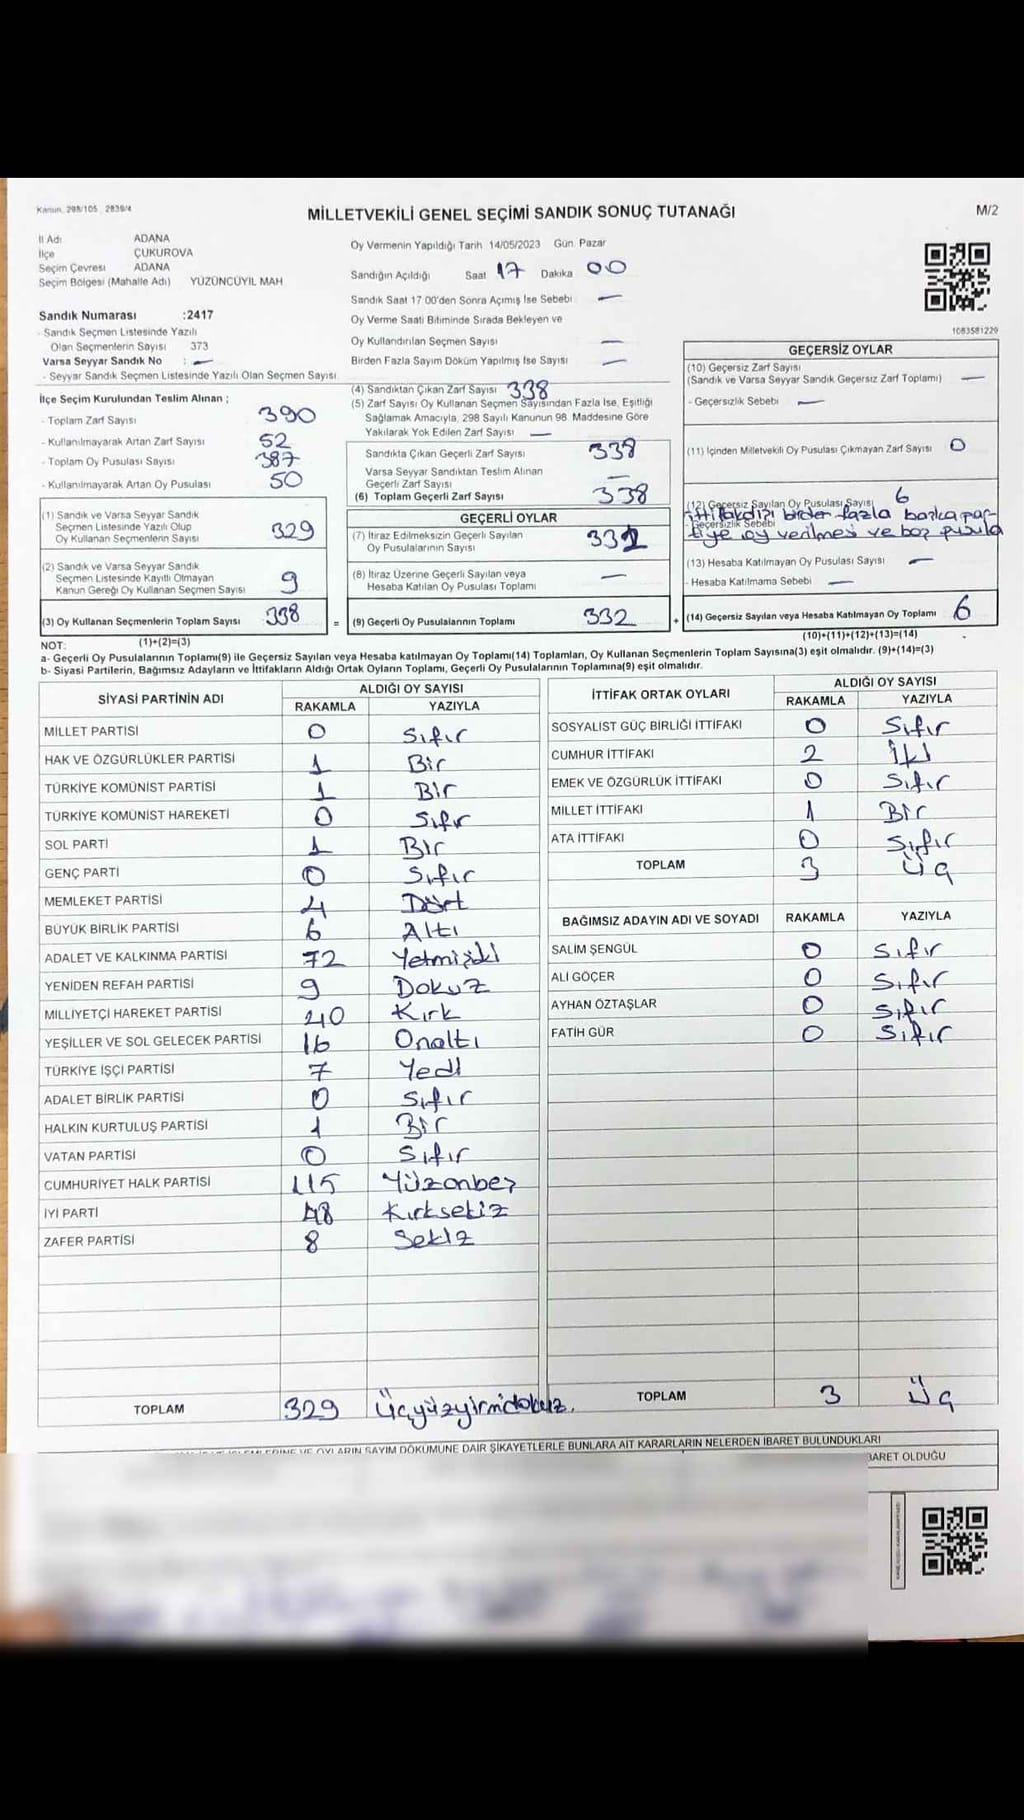 Kanun 298/105 2839/4
MİLLETVEKİLİ GENEL SEÇİMİ SANDIK SONUÇ TUTANAĞI
M/2
İl Adı ADANA
İlçe ÇUKUROVA
Seçim Çevresi ADANA
Seçim Bölgesi (Mahalle Adı) YÜZÜNCÜYIL MAH
Oy Vermenin Yapıldığı Tarih 14/05/2023 Gün Pazar
Sandığın Açıldığı Saat 17 Dakika 00
Sandık Saat 17 00'den Sonra Açımış İse Sebebi —
Oy Verme Saati Bitiminde Sırada Bekleyen ve
Oy Kullandırılan Seçmen Sayısı —
Birden Fazla Sayım Döküm Yapılmış İse Sayısı —
1083581229
Sandık Numarası :2417
- Sandık Seçmen Listesinde Yazılı
Olan Seçmenlerin Sayısı 373
Varsa Seyyar Sandık No : —
- Seyyar Sandık Seçmen Listesinde Yazılı Olan Seçmen Sayısı
İlçe Seçim Kurulundan Teslim Alınan ;
- Toplam Zarf Sayısı 390
- Kullanılmayarak Artan Zarf Sayısı 52
- Toplam Oy Pusulası Sayısı 387
- Kullanılmayarak Artan Oy Pusulası 50
(1) Sandık ve Varsa Seyyar Sandık
Seçmen Listesinde Yazılı Olup
Oy Kullanan Seçmenlerin Sayısı 329
(2) Sandık ve Varsa Seyyar Sandık
Seçmen Listesinde Kayıtlı Olmayan
Kanun Gereği Oy Kullanan Seçmen Sayısı 9
(3) Oy Kullanan Seçmenlerin Toplam Sayısı 338
(4) Sandıktan Çıkan Zarf Sayısı 338
(5) Zarf Sayısı Oy Kullanan Seçmen Sayısından Fazla İse, Eşitliği
Sağlamak Amacıyla, 298 Sayılı Kanunun 98. Maddesine Göre
Yakılarak Yok Edilen Zarf Sayısı —
Sandıkta Çıkan Geçerli Zarf Sayısı 338
Varsa Seyyar Sandıktan Teslim Alınan
Geçerli Zarf Sayısı —
(6) Toplam Geçerli Zarf Sayısı 338
GEÇERLİ OYLAR
(7) İtiraz Edilmeksizin Geçerli Sayılan
Oy Pusulalarının Sayısı 332
(8) İtiraz Üzerine Geçerli Sayılan veya
Hesaba Katılan Oy Pusulası Toplamı —
= (9) Geçerli Oy Pusulalarının Toplamı 332
GEÇERSİZ OYLAR
(10) Geçersiz Zarf Sayısı
(Sandık ve Varsa Seyyar Sandık Geçersiz Zarf Toplamı) —
- Geçersizlik Sebebi —
(11) İçinden Milletvekili Oy Pusulası Çıkmayan Zarf Sayısı 0
(12) Geçersiz Sayılan Oy Pusulası Sayısı 6
- Geçersizlik Sebebi ittifakdışı birden fazla başka par-
tiye oy verilmesi ve boş pusula
(13) Hesaba Katılmayan Oy Pusulası Sayısı —
- Hesaba Katılmama Sebebi —
+ (14) Geçersiz Sayılan veya Hesaba Katılmayan Oy Toplamı 6
NOT: (1)+(2)=(3) (10)+(11)+(12)+(13)=(14)
a- Geçerli Oy Pusulalarının Toplamı(9) ile Geçersiz Sayılan veya Hesaba katılmayan Oy Toplamı(14) Toplamları, Oy Kullanan Seçmenlerin Toplam Sayısına(3) eşit olmalıdır. (9)+(14)=(3)
b- Siyasi Partilerin, Bağımsız Adayların ve İttifakların Aldığı Ortak Oyların Toplamı, Geçerli Oy Pusulalarının Toplamına(9) eşit olmalıdır.
SİYASİ PARTİNİN ADI ALDIĞI OY SAYISI
RAKAMLA YAZIYLA
MİLLET PARTİSİ 0 Sıfır
HAK VE ÖZGÜRLÜKLER PARTİSİ 1 Bir
TÜRKİYE KOMÜNİST PARTİSİ 1 Bir
TÜRKİYE KOMÜNİST HAREKETİ 0 Sıfır
SOL PARTİ 1 Bir
GENÇ PARTİ 0 Sıfır
MEMLEKET PARTİSİ 4 Dört
BÜYÜK BİRLİK PARTİSİ 6 Altı
ADALET VE KALKINMA PARTİSİ 72 Yetmişiki
YENİDEN REFAH PARTİSİ 9 Dokuz
MİLLİYETÇİ HAREKET PARTİSİ 40 Kırk
YEŞİLLER VE SOL GELECEK PARTİSİ 16 Onaltı
TÜRKİYE İŞÇİ PARTİSİ 7 Yedi
ADALET BİRLİK PARTİSİ 0 Sıfır
HALKIN KURTULUŞ PARTİSİ 1 Bir
VATAN PARTİSİ 0 Sıfır
CUMHURİYET HALK PARTİSİ 115 Yüzonbeş
İYİ PARTİ 48 Kırksekiz
ZAFER PARTİSİ 8 Sekiz
TOPLAM 329 Üçyüzyirmidokuz.
İTTİFAK ORTAK OYLARI ALDIĞI OY SAYISI
RAKAMLA YAZIYLA
SOSYALİST GÜÇ BİRLİĞİ İTTİFAKI 0 Sıfır
CUMHUR İTTİFAKI 2 İki
EMEK VE ÖZGÜRLÜK İTTİFAKI 0 Sıfır
MİLLET İTTİFAKI 1 Bir
ATA İTTİFAKI 0 Sıfır
TOPLAM 3 Üç
BAĞIMSIZ ADAYIN ADI VE SOYADI RAKAMLA YAZIYLA
SALİM ŞENGÜL 0 Sıfır
ALİ GÖÇER 0 Sıfır
AYHAN ÖZTAŞLAR 0 Sıfır
FATİH GÜR 0 Sıfır
TOPLAM 3 Üç
OYLARIN SAYIM DÖKÜMÜNE DAİR ŞİKAYETLERLE BUNLARA AİT KARARLARIN NELERDEN İBARET BULUNDUKLARI
BARET OLDUĞU